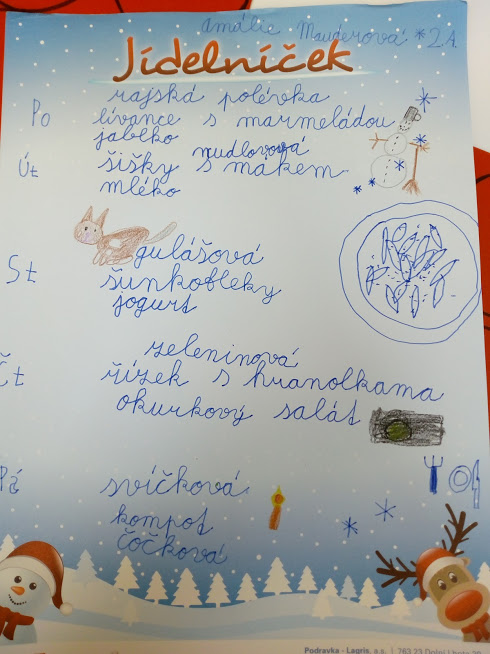 Amálie Mauderová 2.A
Jídelníček
Po rajská polévka
lívance s marmeládou
jablko
Út nudlovová
šišky s mákem
mléko
St gulášová
šunkofleky
jogurt
Čt zeleninová
řízek s hranolkama
okurkový salát
Pá svíčková
kompot
čočková
Podravka - Lagris, a.s. | 763 23 Dolní Lhota 39